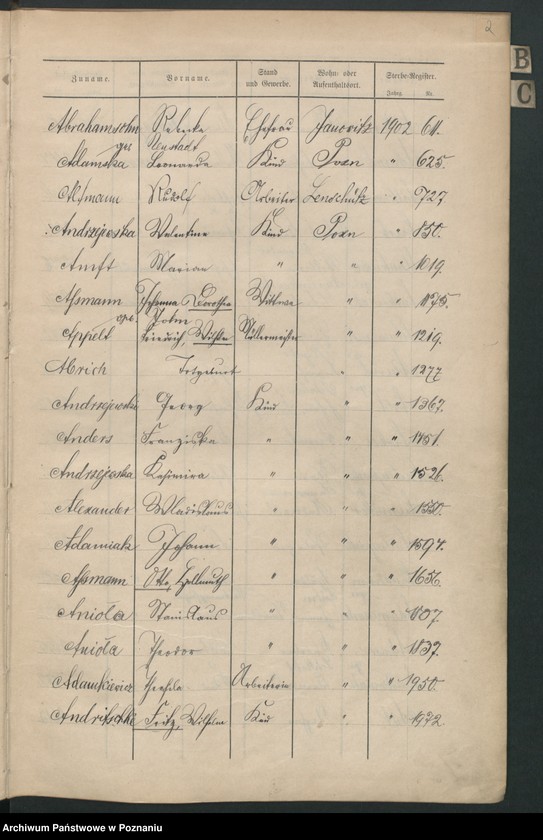 2
B
C
Zuname. Vorname. Stand und Gewerbe. Wohn- oder Aufenthaltsort. Sterbe-Register.
Jahrg. Nr.
Abrahamsohn Rebecka Ehefrau Janowitz 1902 611.
geb. Neustadt
Adamska Leonarda Kind Posen " 625.
Rudolf Arbeiter " 727
Andrzejewska Valentine Kind Posen " 850.
Amft Marian " " " 1019
Assmann Johanna Dorothea Wittwe " "
geb. Hohn
Appelt Friedrich, Wilhelm Müllermeister " " 1219.
Abrich Totgeburt " " 1277
Andrzejewski Georg Kind " " 1367.
Anders Franziska " " " 1451.
Andrzejewska Kasimira " " " 1526.
Alexander Wladislaus " " "
Adamiak Johann " " " 1594.
Assmann Otto, Hellmuth " " " 1656
Anioła Stanislaus " " "
Anioła Theodor " " " 1837.
Adamkiewicz Arbeiterin " " 1950.
Andritschke Fritz, Wilhelm Kind " " 1972
Archiwum Państwowe w Poznaniu